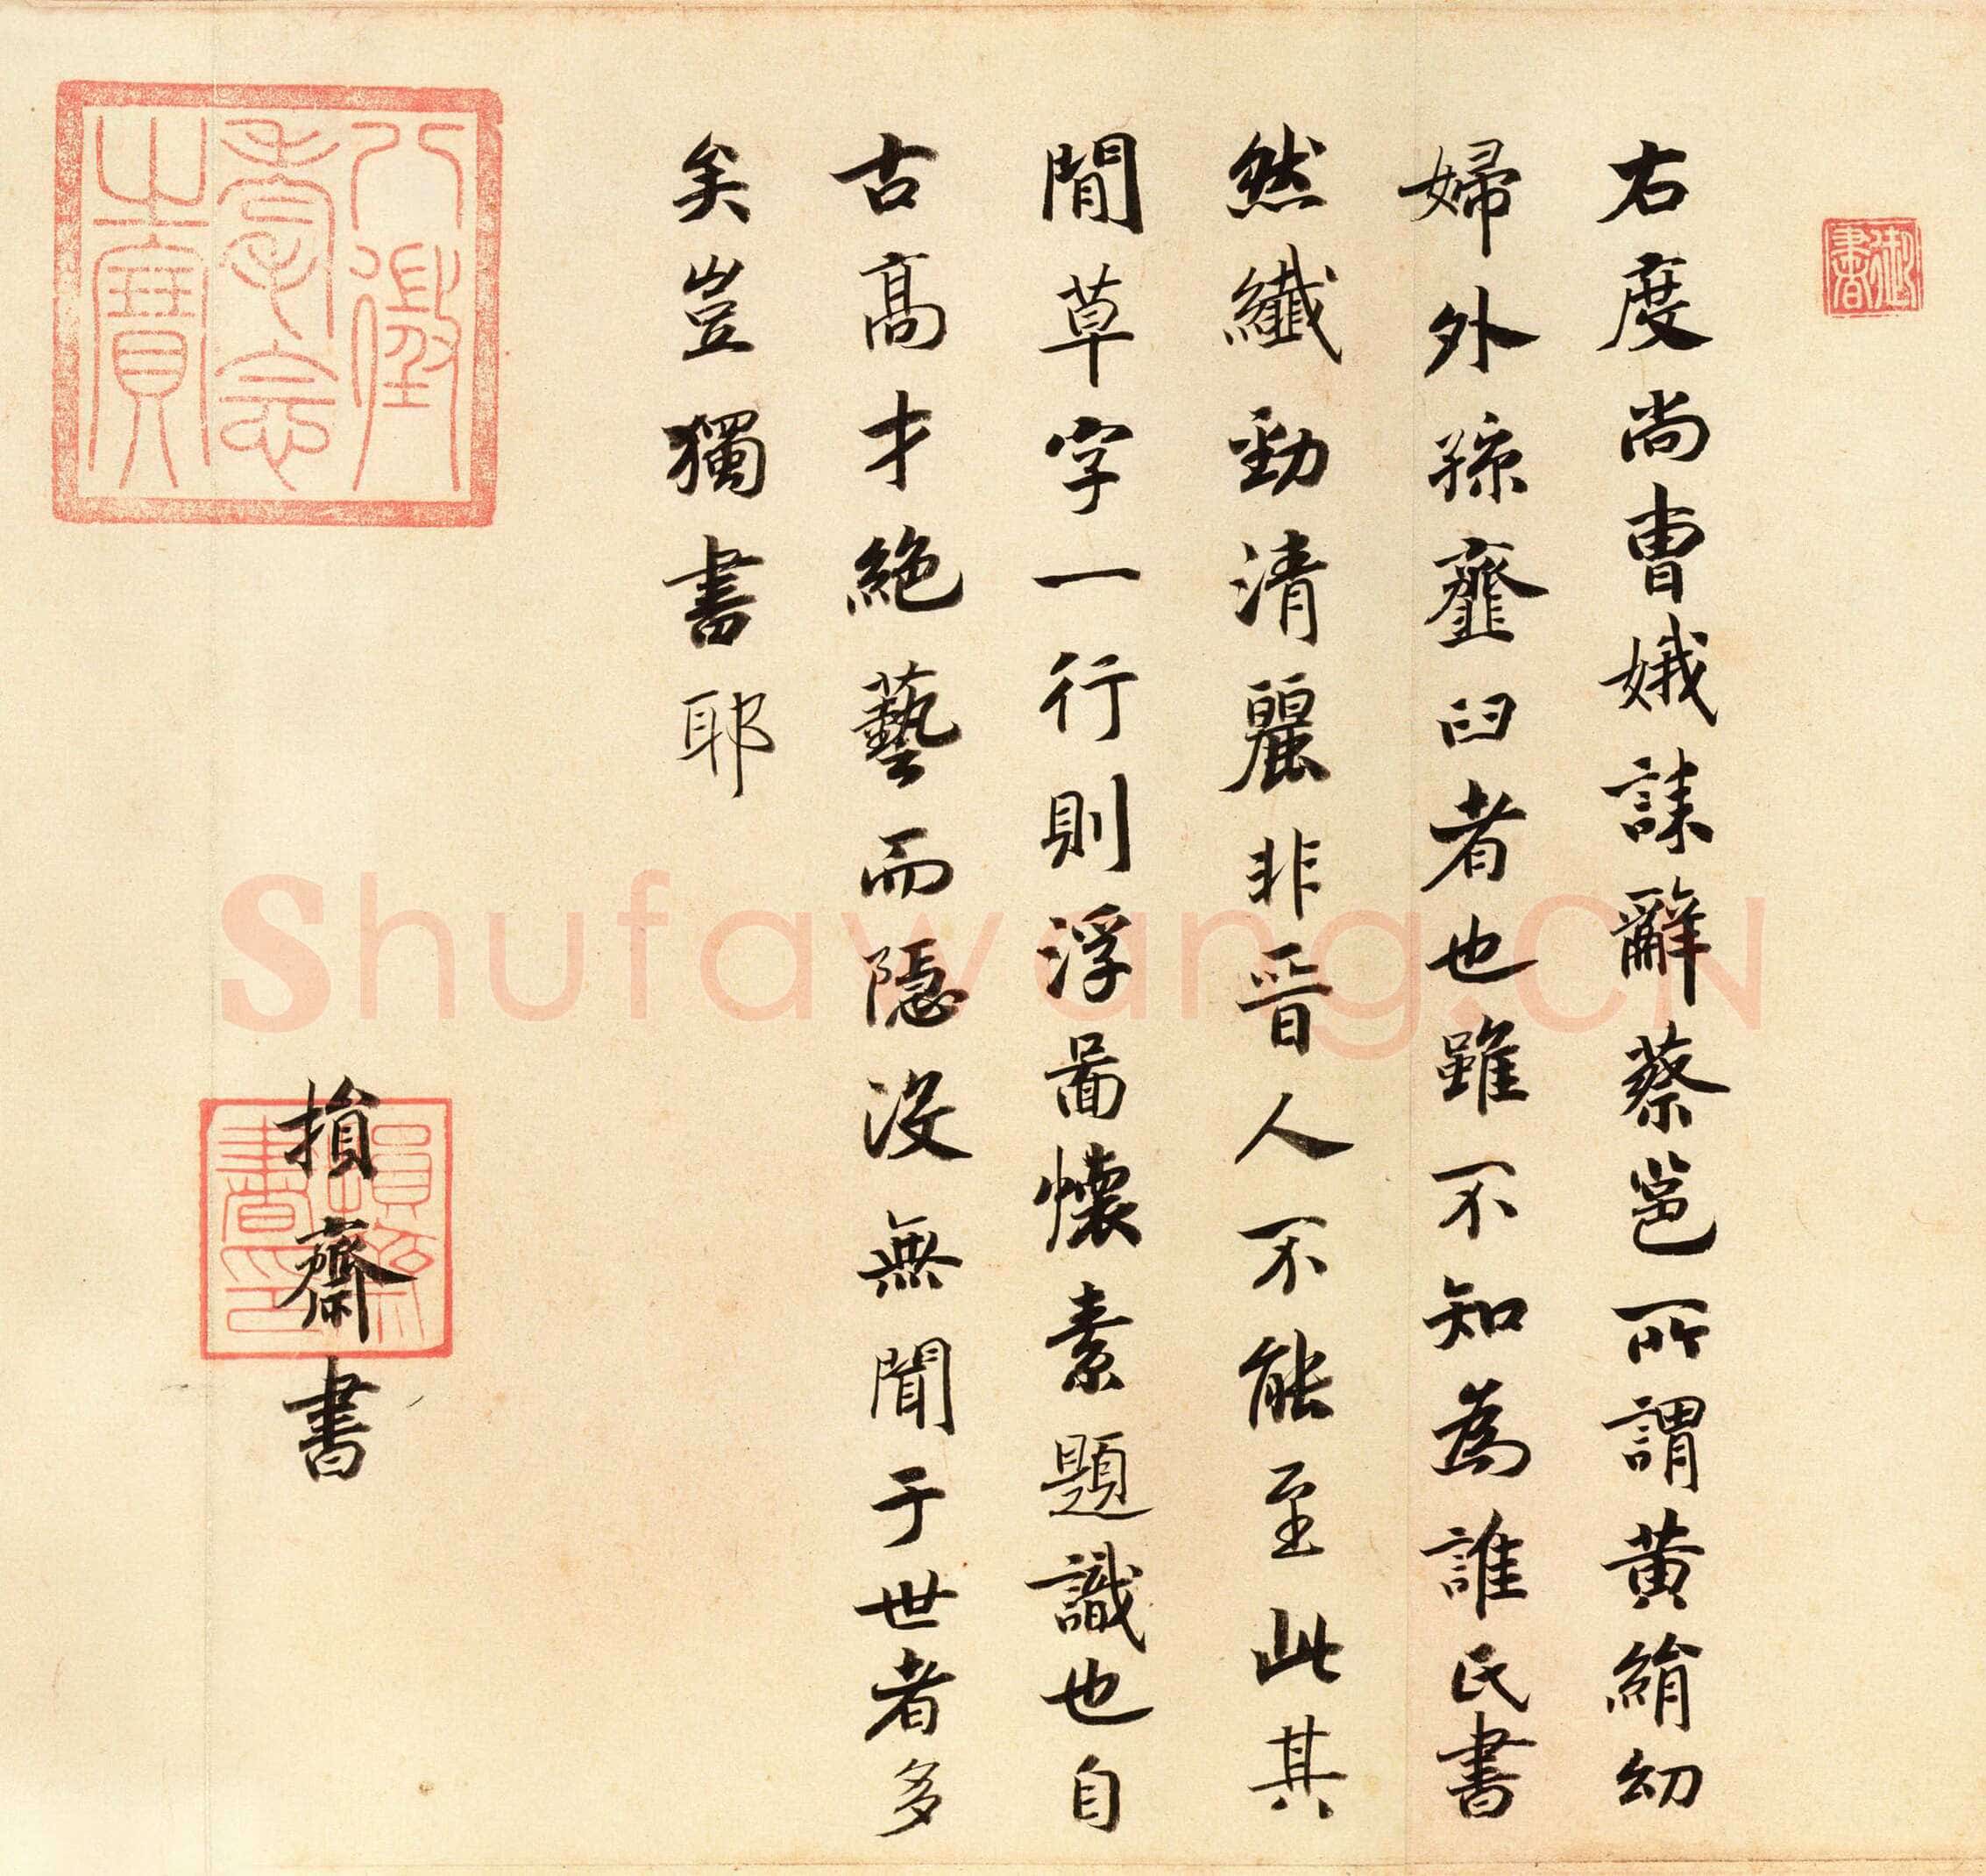 御書
右度尚曹娥誄辭蔡邕所謂黄絹幼
婦外孫虀臼者也雖不知為誰氏書
然纖勁清麗非晉人不能至此其
間草字一行則浮圖懷素題識也自
古高才絶藝而隱没無聞于世者多
矣豈獨書耶
損齋書
損齋書印
八徵耄念之寶
Shufawang.CN